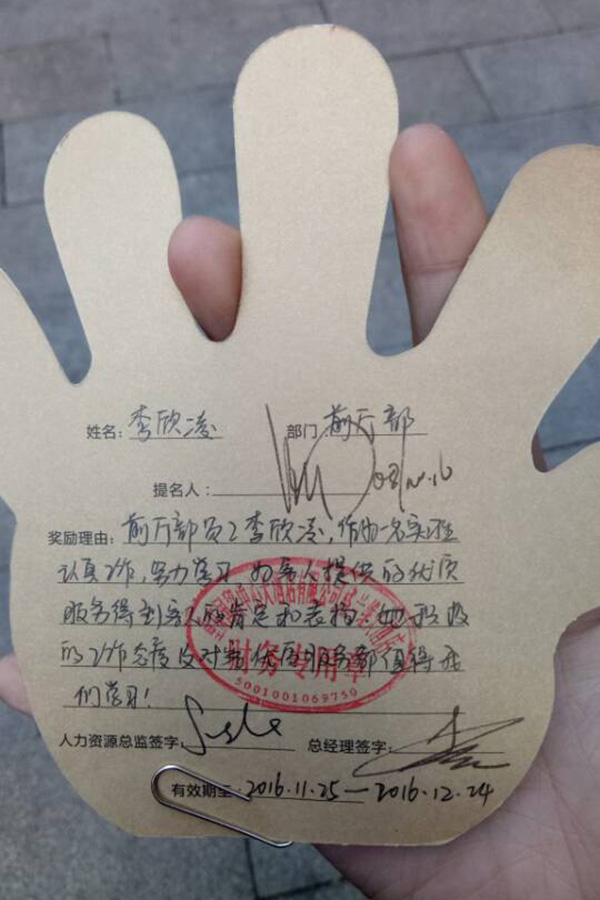 姓名:李欣凌 部门:前厅部
提名人:
奖励理由:前厅部员工李欣凌,作为一名实习生
认真工作,努力学习,为客人提供的优质
服务得到客人的肯定和表扬。她积极
的工作态度及对客优质服务都值得我
们学习!
财务专用章
5001001069750
人力资源总监签字: 总经理签字:
有效期至:2016.11.25—2016.12.24